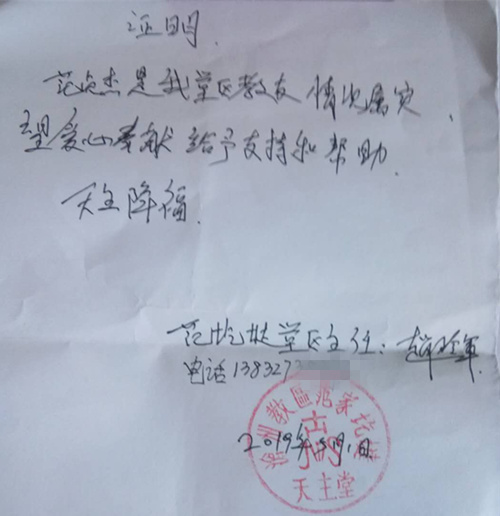 证明.
范贞杰是我堂区教友 情况属实,
望爱心奉献 给予支持和帮助.
天主降福.
范圪垯堂区主任:
电话138327
2019年5月1日
教區范家圪
天主堂